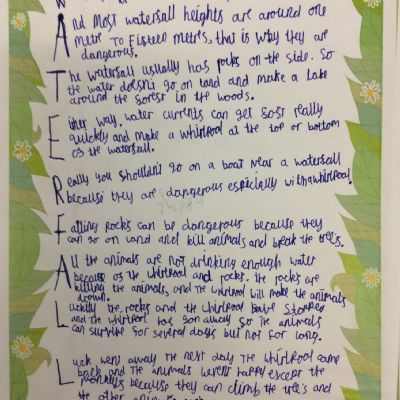 W
And Most watersall heights are around one
metre To Fisteen metres, that is why they are
dangerous.
The watersall usually has rocks on the side. So
the water doesn't go on land and make a lake
around the sorest in the woods.
Either way, water currents can get sost really
quickly and make a whirlpool at the top or bottom
os the watersall.
Really you shouldn't go on a boat near a watersall
because they are dangerous especially with a whirlpool
Falling rocks can be dangerous because they
can go on land and kill animals and break the trees.
All the animals are not drinking enough water
because os the whirlpool and rocks. The rocks are
killing the animals, and the whirlpool will make the animals
drown.
Luckily the rocks and the whirlpool have stopped
and the whirlpool has gon away so the animals
can survive for several days but not for long.
Luck went away the next day the whirlpool came
back and the animals werent happy except the
monkeys because they can climb the trees and
the other